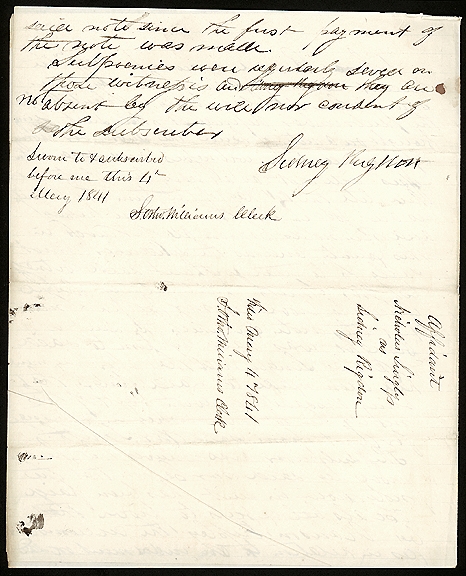 said note since the first payment of
the note was made.
Subpoenies were regularly served on
those witnessis and they are
not absent by the will nor consent of
the subscriber
Sidney Rigdon
Sworn to & subscribed
before me this 4th
May 1841
J. Williams Clerk
Affidavit
Nicholas
vs
Sidney Rigdon
Files May 4th 1841
Williams Clerk